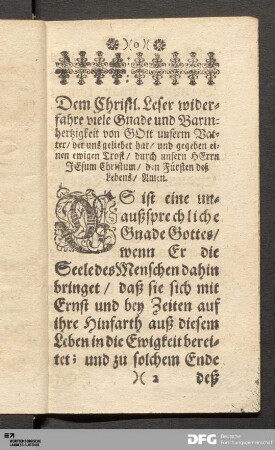 )(o)(
Dem Christl. Leser wider-
fahre viele Gnade und Barm-
hertzigkeit von GOtt unserm Vat-
ter/ der uns geliebet hat/ und gegeben ei-
nen ewigen Trost/ durch unsern HErrn
JEsum Christum/ den Fürsten deß
Lebens/ Amen.
ES ist eine un-
außsprechliche
Gnade Gottes/
wenn Er die
Seele des Menschen dahin
bringet/ daß sie sich mit
Ernst und bey Zeiten auf
ihre Hinfarth auß diesem
Leben in die Ewigkeit berei-
tet; und zu solchem Ende
)( 2 deß
DFG